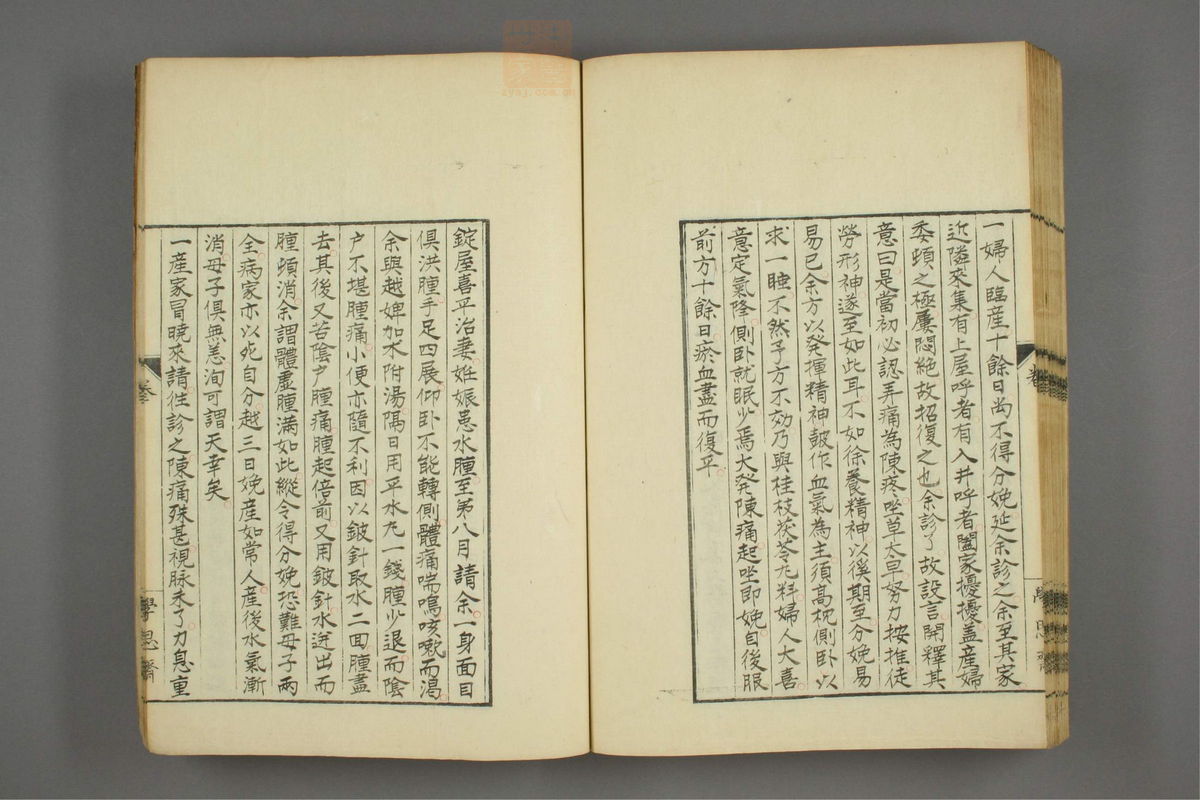 一婦人臨産十餘日尚不得分娩延余診之余至其家
近隣來集有上屋呼者有入井呼者闔家擾擾蓋産婦
委頓之極屢悶絶故招復之也余診了故設言開釋其
意曰是當初必認弄痛為陳疼坐草太早努力按推徒
勞形神遂至如此耳不如徐養精神以徯期至分娩易
易已余方以発揮精神皷作血氣為主須高枕側卧以
求一睡不然予方不効乃與桂枝茯苓丸料婦人大喜
意定氣降側卧就眠少焉大発陳痛起坐即娩自後服
前方十餘日瘀血盡而復平
錠屋喜平治妻妊娠患水腫至第八月請余一身面目
俱洪腫手足四展仰卧不能轉側體痛喘鳴咳嗽而渴
余與越婢加朮附湯隔日用平水丸一錢腫少退而陰
户不堪腫痛小便亦隨不利因以鈹針取水二面腫盡
去其後又苦陰户腫痛腫起倍前又用鈹針水迸出而
腫頓消余謂體虚腫滿如此縱令得分娩恐難母子兩
全病家亦以死自分越三日娩産如常人産後水氣漸
消母子俱無恙洵可謂天幸矣
一産家冒曉來請往診之陳痛殊甚視脉未了力息重
學思齋